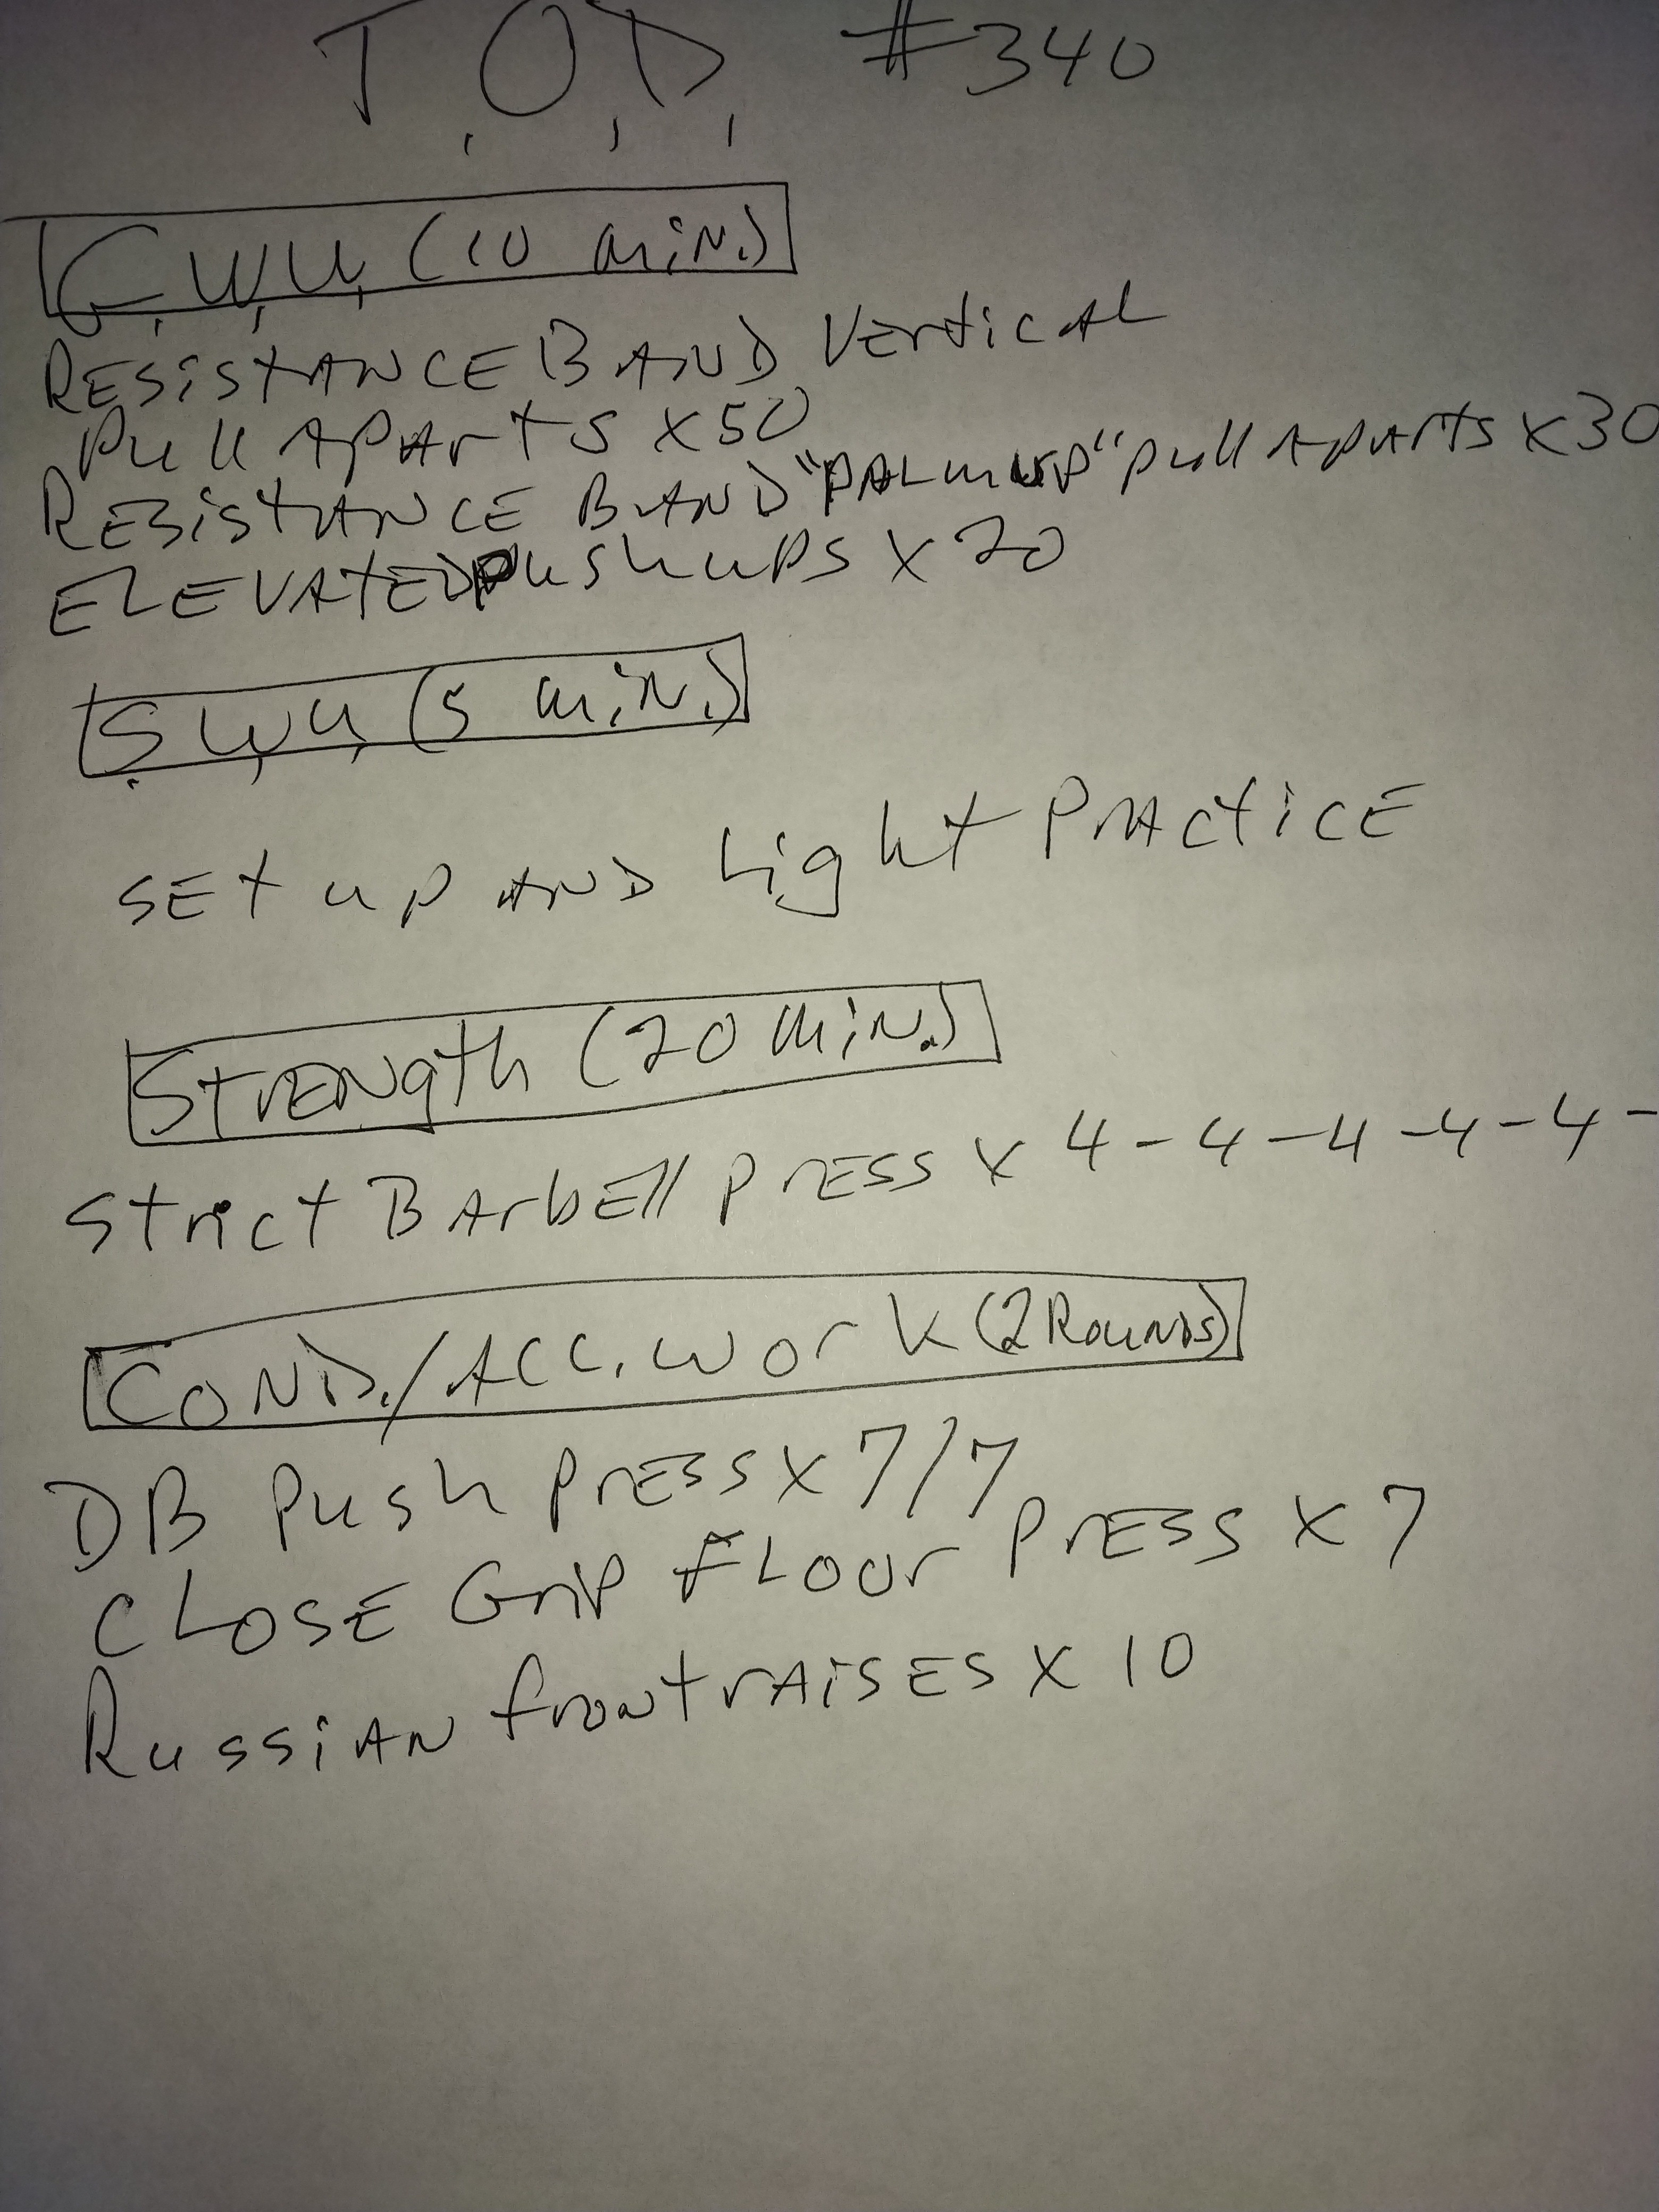 T.O.D. #340
G.W.U. (10 min.)
Resistance Band Vertical
Pull Aparts x 50
Resistance Band "Palm up" pull Aparts x 30
Elevated Pushups x 20
S.W.U. (5 min.)
Set up and Light Practice
Strength (20 min.)
Strict Barbell Press x 4-4-4-4-4-
Cond./Acc. Work (2 Rounds)
DB Push Press x 7/7
Close Grip Floor Press x 7
Russian front raises x 10